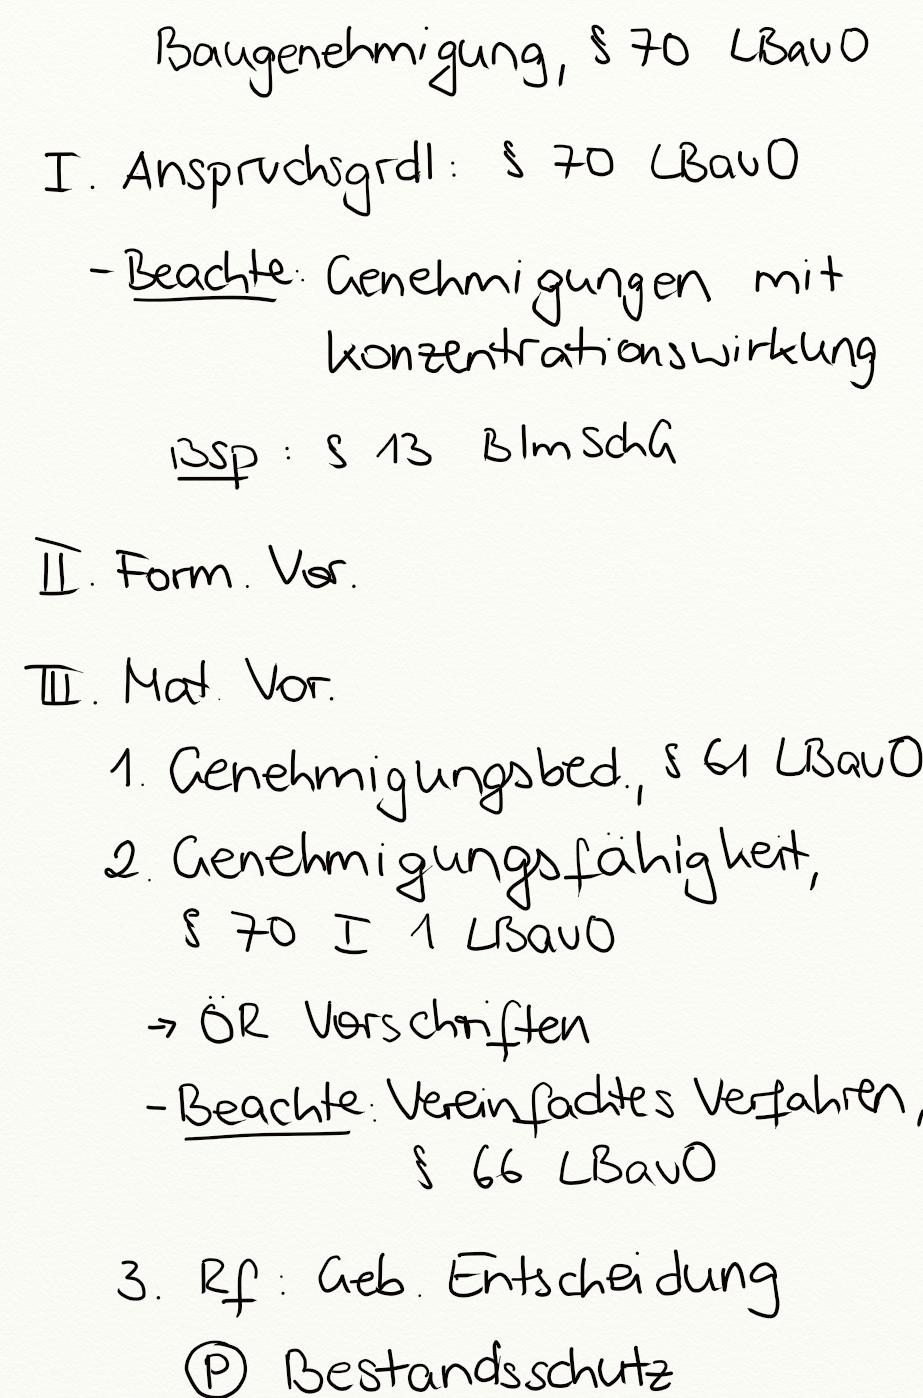 Baugenehmigung, § 70 LBauO
I. Anspruchsgrdl: § 70 LBauO
- Beachte: Genehmigungen mit
Konzentrationswirkung
Bsp: § 13 BImSchG
II. Form. Vor.
III. Mat. Vor.
1. Genehmigungsbed., § 61 LBauO
2. Genehmigungsfähigkeit,
§ 70 I 1 LBauO
→ ÖR Vorschriften
- Beachte: Vereinfachtes Verfahren,
§ 66 LBauO
3. Rf: Geb. Entscheidung
Ⓟ Bestandsschutz